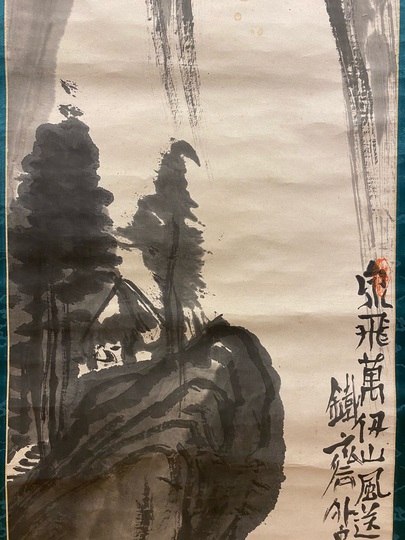 泉飛萬仞山風送
鐵齋外史